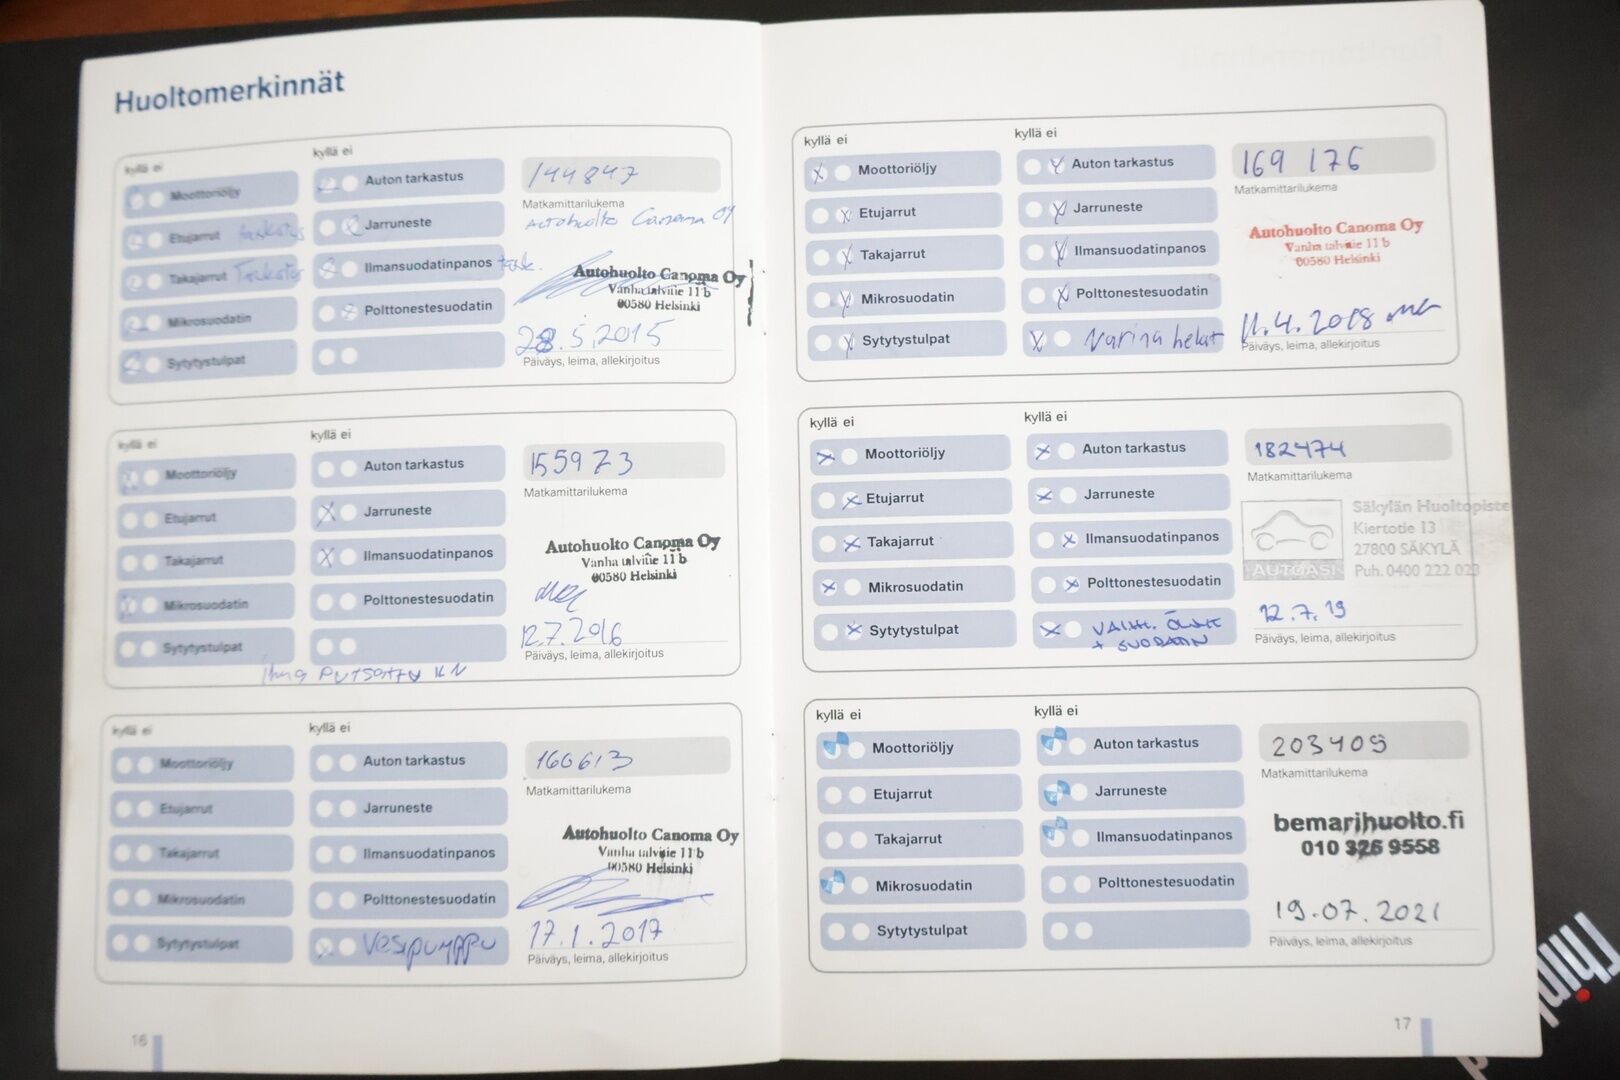 Huoltomerkinnät
kyllä ei
kyllä ei
Moottoriöljy
Auton tarkastus
144847
Matkamittarilukema
Etujarrut
Jarruneste
Autohuolto Canoma Oy
Takajarrut
Ilmansuodatinpanos tark.
Autohuolto Canoma Oy
Vanha talvitie 11 b
00580 Helsinki
Mikrosuodatin
Polttonestesuodatin
28.5.2015
Sytytystulpat
Päiväys, leima, allekirjoitus
kyllä ei
kyllä ei
Moottoriöljy
Auton tarkastus
155973
Matkamittarilukema
Etujarrut
Jarruneste
Takajarrut
Ilmansuodatinpanos
Autohuolto Canoma Oy
Vanha talvitie 11 b
00580 Helsinki
Mikrosuodatin
Polttonestesuodatin
12.7.2016
Sytytystulpat
Päiväys, leima, allekirjoitus
kyllä ei
kyllä ei
Moottoriöljy
Auton tarkastus
160613
Matkamittarilukema
Etujarrut
Jarruneste
Takajarrut
Ilmansuodatinpanos
Autohuolto Canoma Oy
Vanha talvitie 11 b
00580 Helsinki
Mikrosuodatin
Polttonestesuodatin
Sytytystulpat
Vesipumppu
17.1.2017
Päiväys, leima, allekirjoitus
16
kyllä ei
kyllä ei
Moottoriöljy
Auton tarkastus
169 176
Matkamittarilukema
Etujarrut
Jarruneste
Takajarrut
Ilmansuodatinpanos
Autohuolto Canoma Oy
Vanha talvitie 11 b
00580 Helsinki
Mikrosuodatin
Polttonestesuodatin
Sytytystulpat
11.4.2018
Päiväys, leima, allekirjoitus
kyllä ei
kyllä ei
Moottoriöljy
Auton tarkastus
182474
Matkamittarilukema
Etujarrut
Jarruneste
Takajarrut
Ilmansuodatinpanos
AUTOASI
Säkylän Huoltopiste
Kiertotie 13
27800 SÄKYLÄ
Puh. 0400 222 023
Mikrosuodatin
Polttonestesuodatin
Sytytystulpat
+ SUODATIN
12.7.19
Päiväys, leima, allekirjoitus
kyllä ei
kyllä ei
Moottoriöljy
Auton tarkastus
203409
Matkamittarilukema
Etujarrut
Jarruneste
Takajarrut
Ilmansuodatinpanos
bemarihuolto.fi
010 326 9558
Mikrosuodatin
Polttonestesuodatin
Sytytystulpat
19.07.2021
Päiväys, leima, allekirjoitus
17